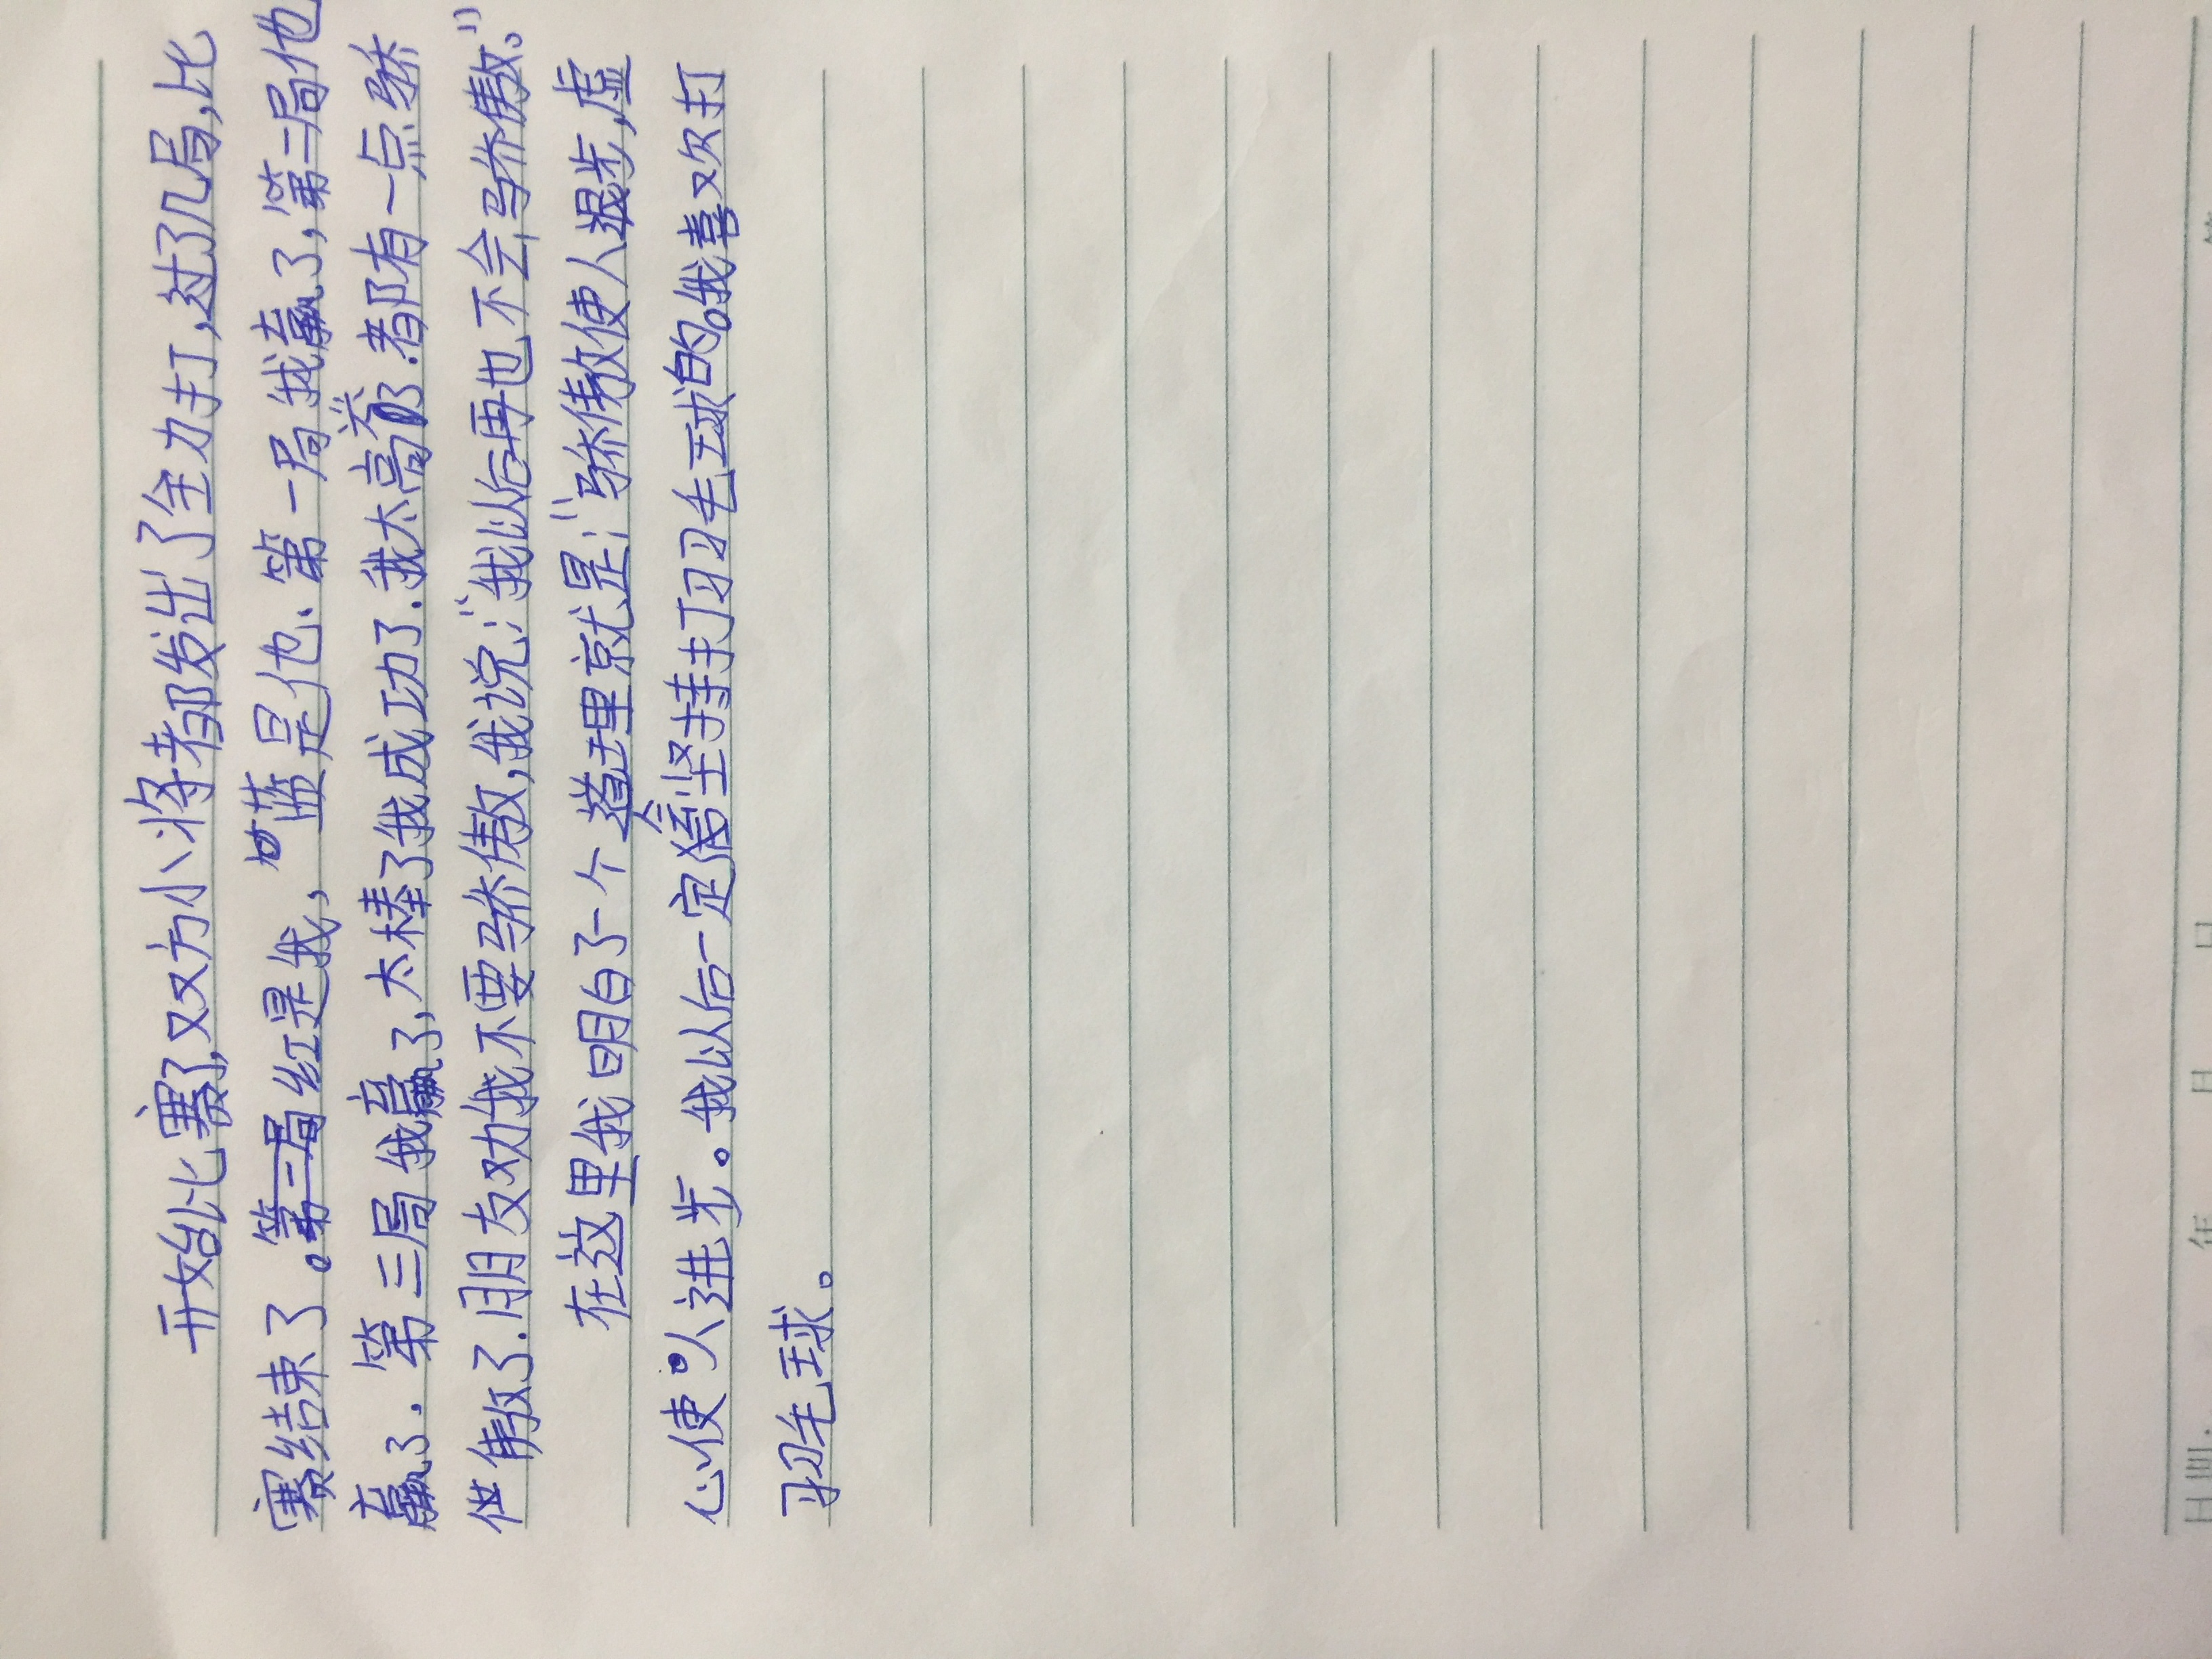 开始比赛了,双方小将都发出了全力打,过了几局,比
赛结束了。红是我,蓝是他、第一局我赢了,第二局他
赢了.第三局我赢了,太棒了我成功了.我太高兴了.都有一点骄
傲了.朋友劝我不要骄傲,我说:“我以后再也不会骄傲。”
在这里我明白了一个道理就是:“骄傲使人退步,虚
心使人进步。我以后一定会坚持打羽毛球的。我喜欢打
羽毛球。
日期: 年 月 日